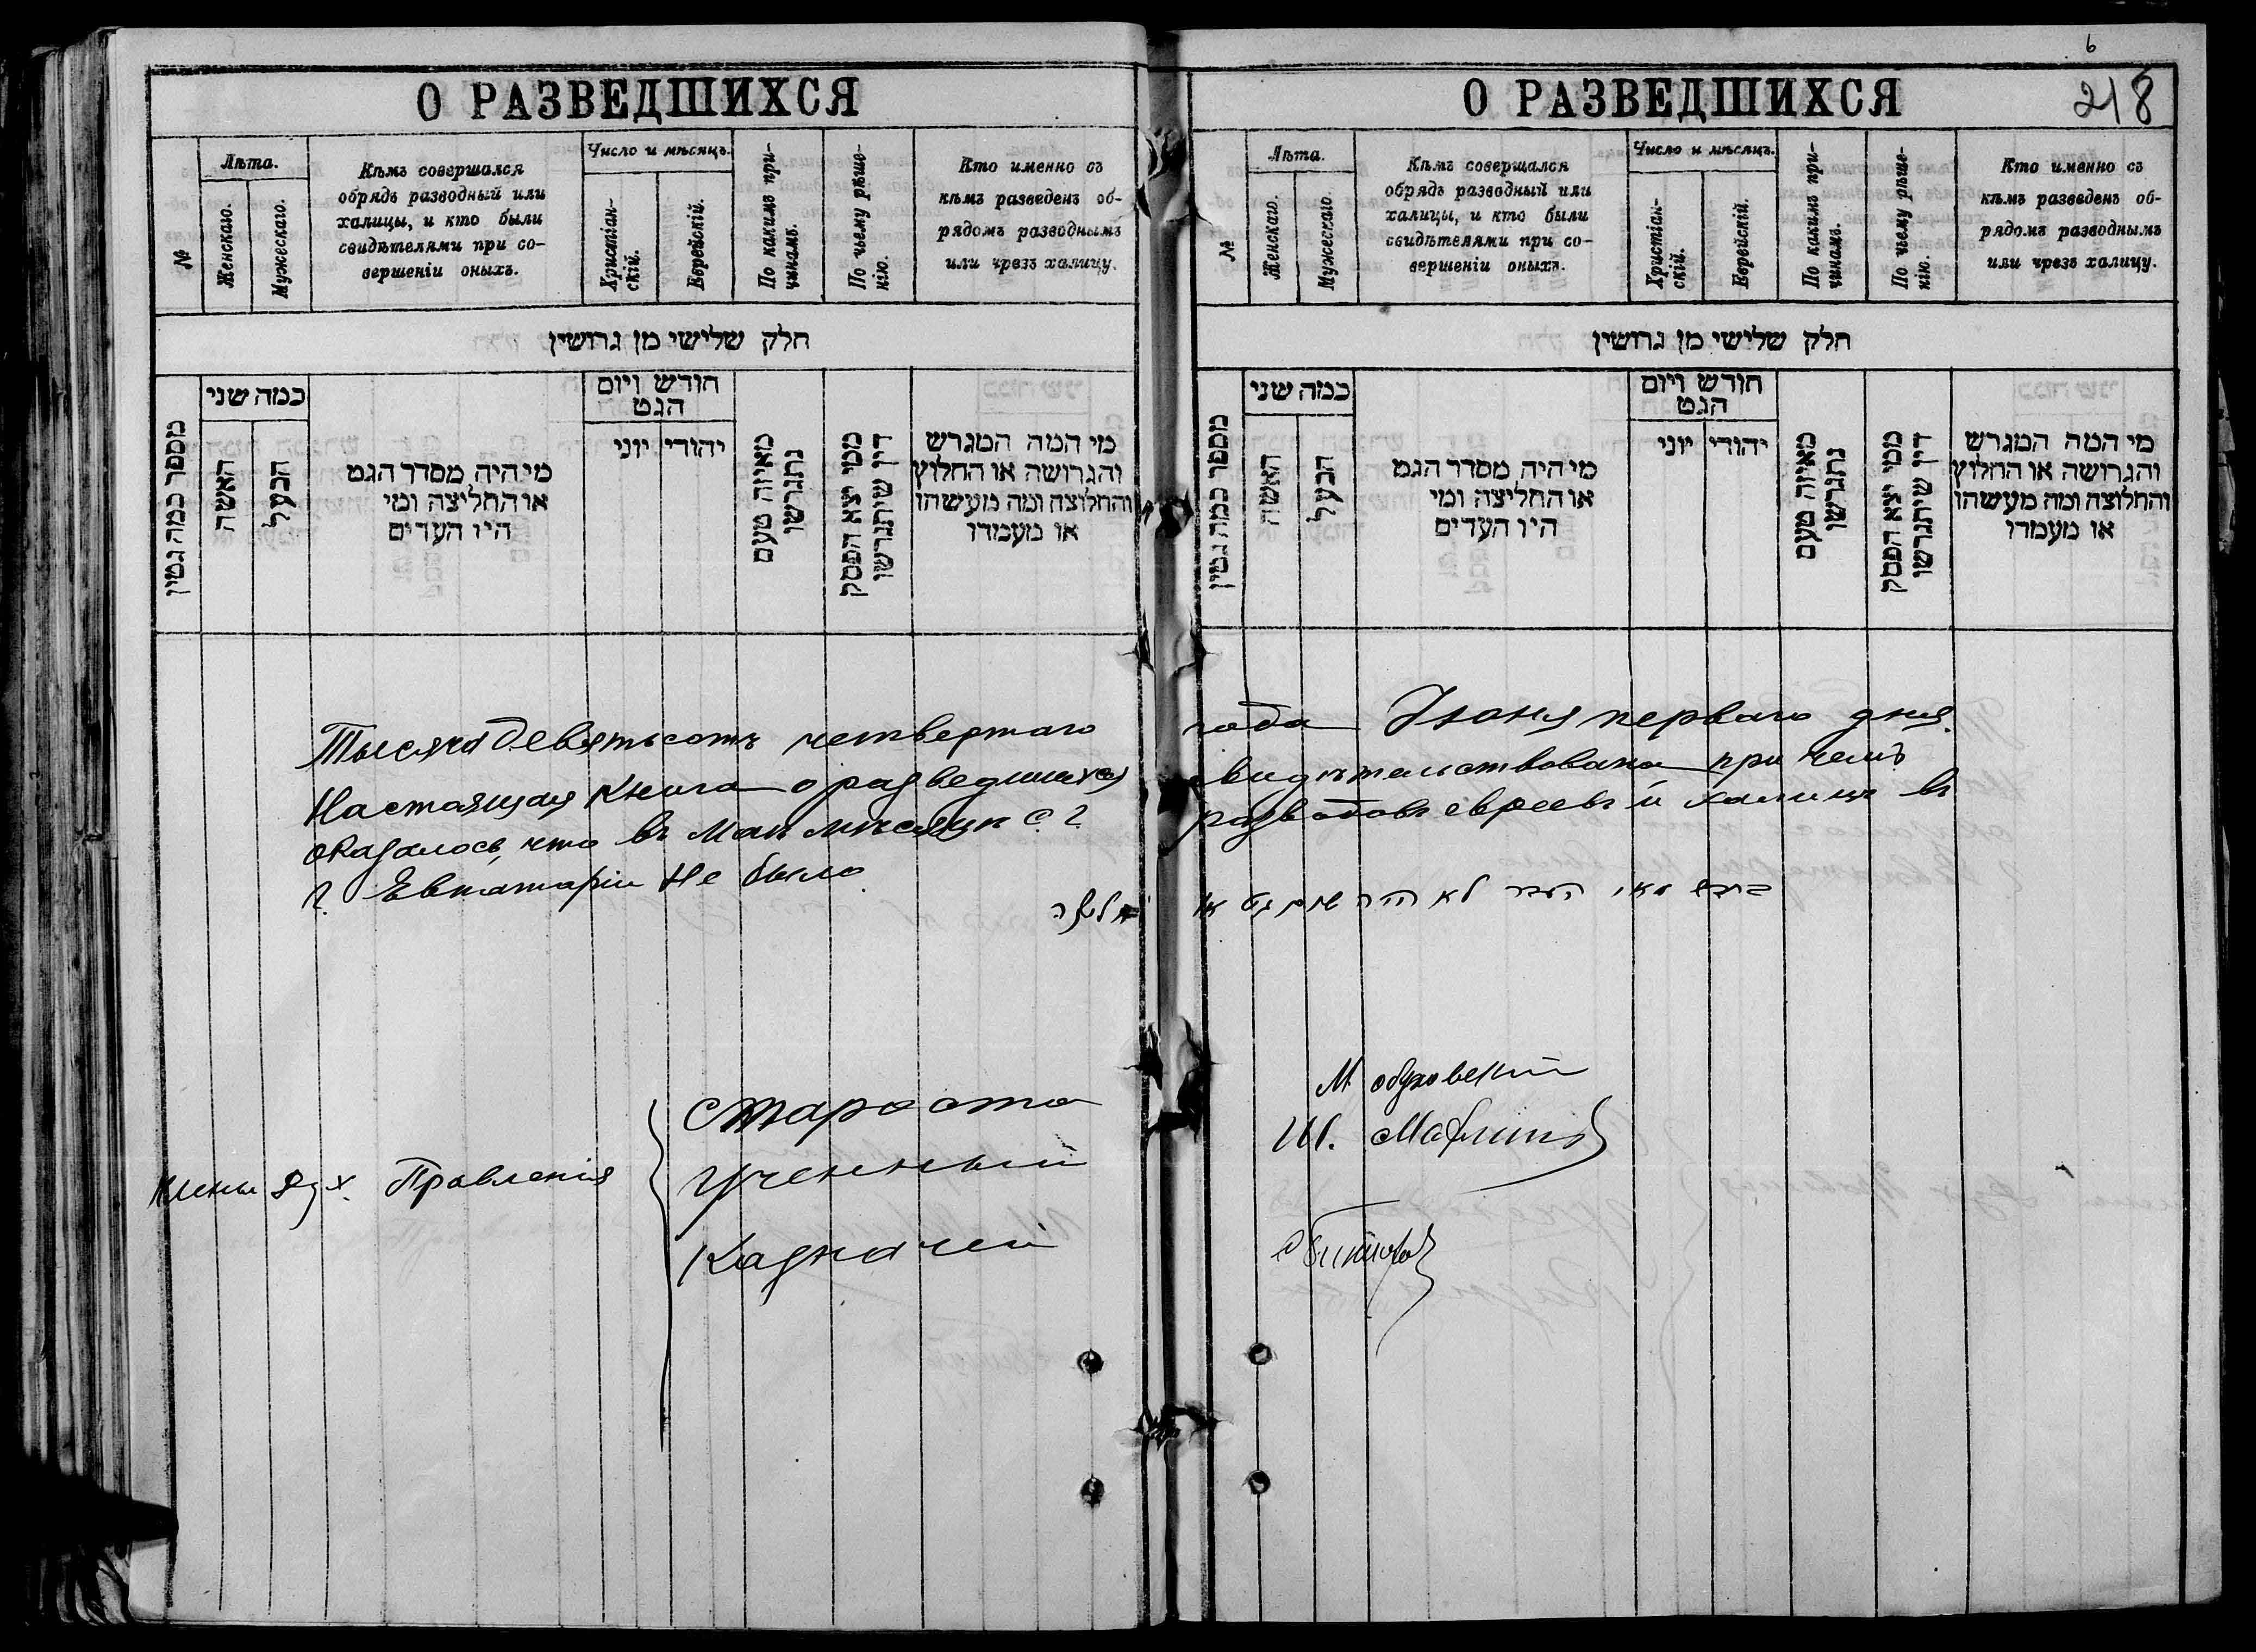 О РАЗВЕДШИХСЯ
№
Лѣта.
Женскаго.
Мужескаго.
Кѣмъ совершался
обрядъ разводный или
халицы, и кто были
свидѣтелями при со-
вершеніи оныхъ.
Число и мѣсяцъ.
Христіан-
скій.
Еврейскій.
По какимъ при-
чинамъ.
По чьему рѣше-
нію.
Кто именно съ
кѣмъ разведенъ об-
рядомъ разводнымъ
или чрезъ халицу.
חלק שלישי מן גרושין
מספר כמה גטין
כמה שני
האשה
הבעל
מי היה מסדר הגט
או החליצה ומי
היו העדים
חודש ויום
הגט
יוני
יהודי
מאיזה טעם
נתגרשו
ממי יצא הפסק
דין שיתגרשו
מי המה המגרש
והגרושה או החלוץ
והחלוצה ומה מעשהו
או מעמדו
Тысяча девятьсотъ четвертаго
Настоящая книга о разведшихся
оказалось, что въ Маѣ мѣсяцѣ с. г.
г. Евпаторіи не было
Члены Дух. Правленія
Староста
Ученный
Казначей
6
218
О РАЗВЕДШИХСЯ
№
Лѣта.
Женскаго.
Мужескаго.
Кѣмъ совершался
обрядъ разводный или
халицы, и кто были
свидѣтелями при со-
вершеніи оныхъ.
Число и мѣсяцъ.
Христіан-
скій.
Еврейскій.
По какимъ при-
чинамъ.
По чьему рѣше-
нію.
Кто именно съ
кѣмъ разведенъ об-
рядомъ разводнымъ
или чрезъ халицу.
חלק שלישי מן גרושין
מספר כמה גטין
כמה שני
האשה
הבעל
מי היה מסדר הגט
או החליצה ומי
היו העדים
חודש ויום
הגט
יוני
יהודי
מאיזה טעם
נתגרשו
ממי יצא הפסק
דין שיתגרשו
מי המה המגרש
והגרושה או החלוץ
והחלוצה ומה מעשהו
או מעמדו
года Іюня перваго дня
свидѣтельствована при чемъ
разводовъ евреевъ и халицъ въ
לא היה שום גט או
М Обуховскій
Ш.